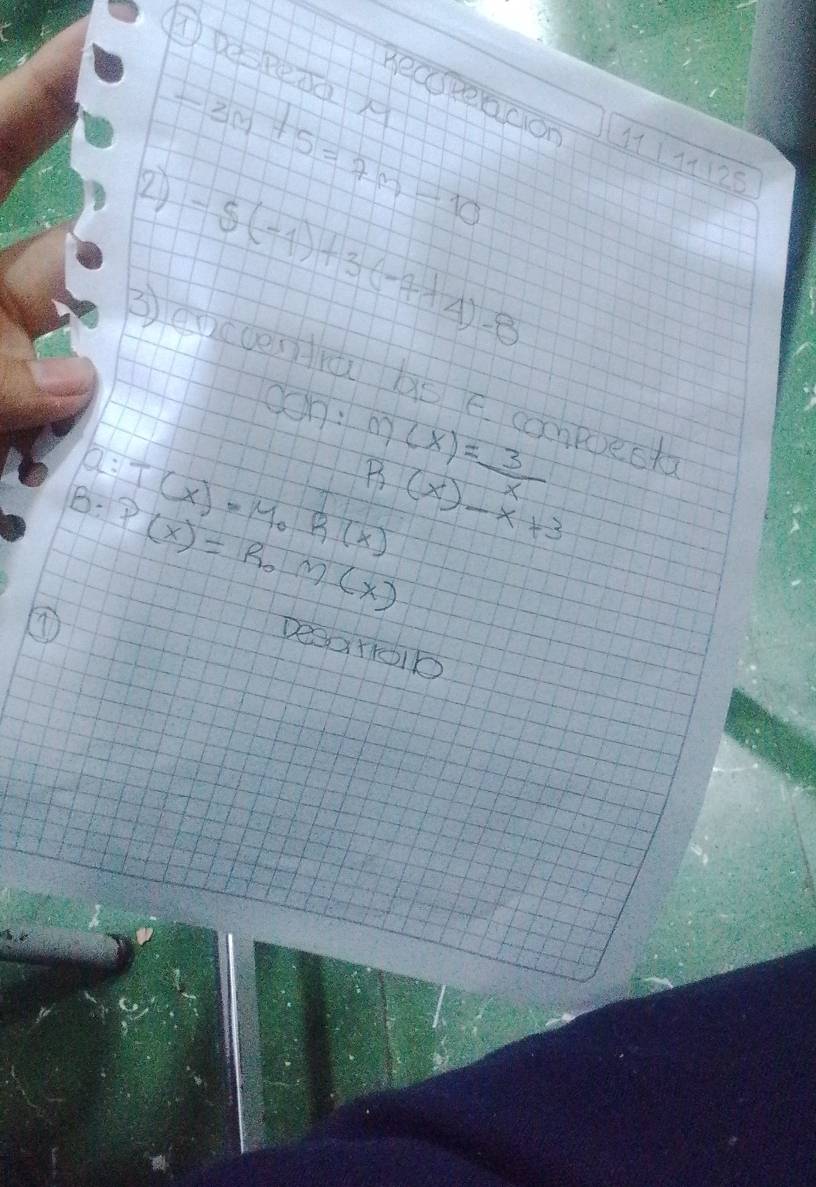 Recuperacion
11 | 11 | 25
① Despeja M
-3m + 5 = 7m - 10
2) -5(-1) + 3(-7+4) - 8
3) encuentra las F compuesta
con: m(x) = 3/x
R(x) - x + 3
a: T(x) = M o R(x)
B: P(x) = R o m(x)
Desarrollo
①